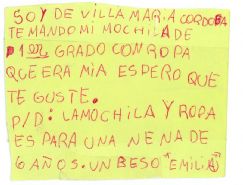 SOY DE VILLA MARIA CORDOBA
TE MANDO MI MOCHILA DE
1er GRADO CON ROPA
QUE ERA MIA ESPERO QUE
TE GUSTE.
P/D: LA MOCHILA Y ROPA
ES PARA UNA NENA DE
6 AÑOS. UN BESO "EMILIA"